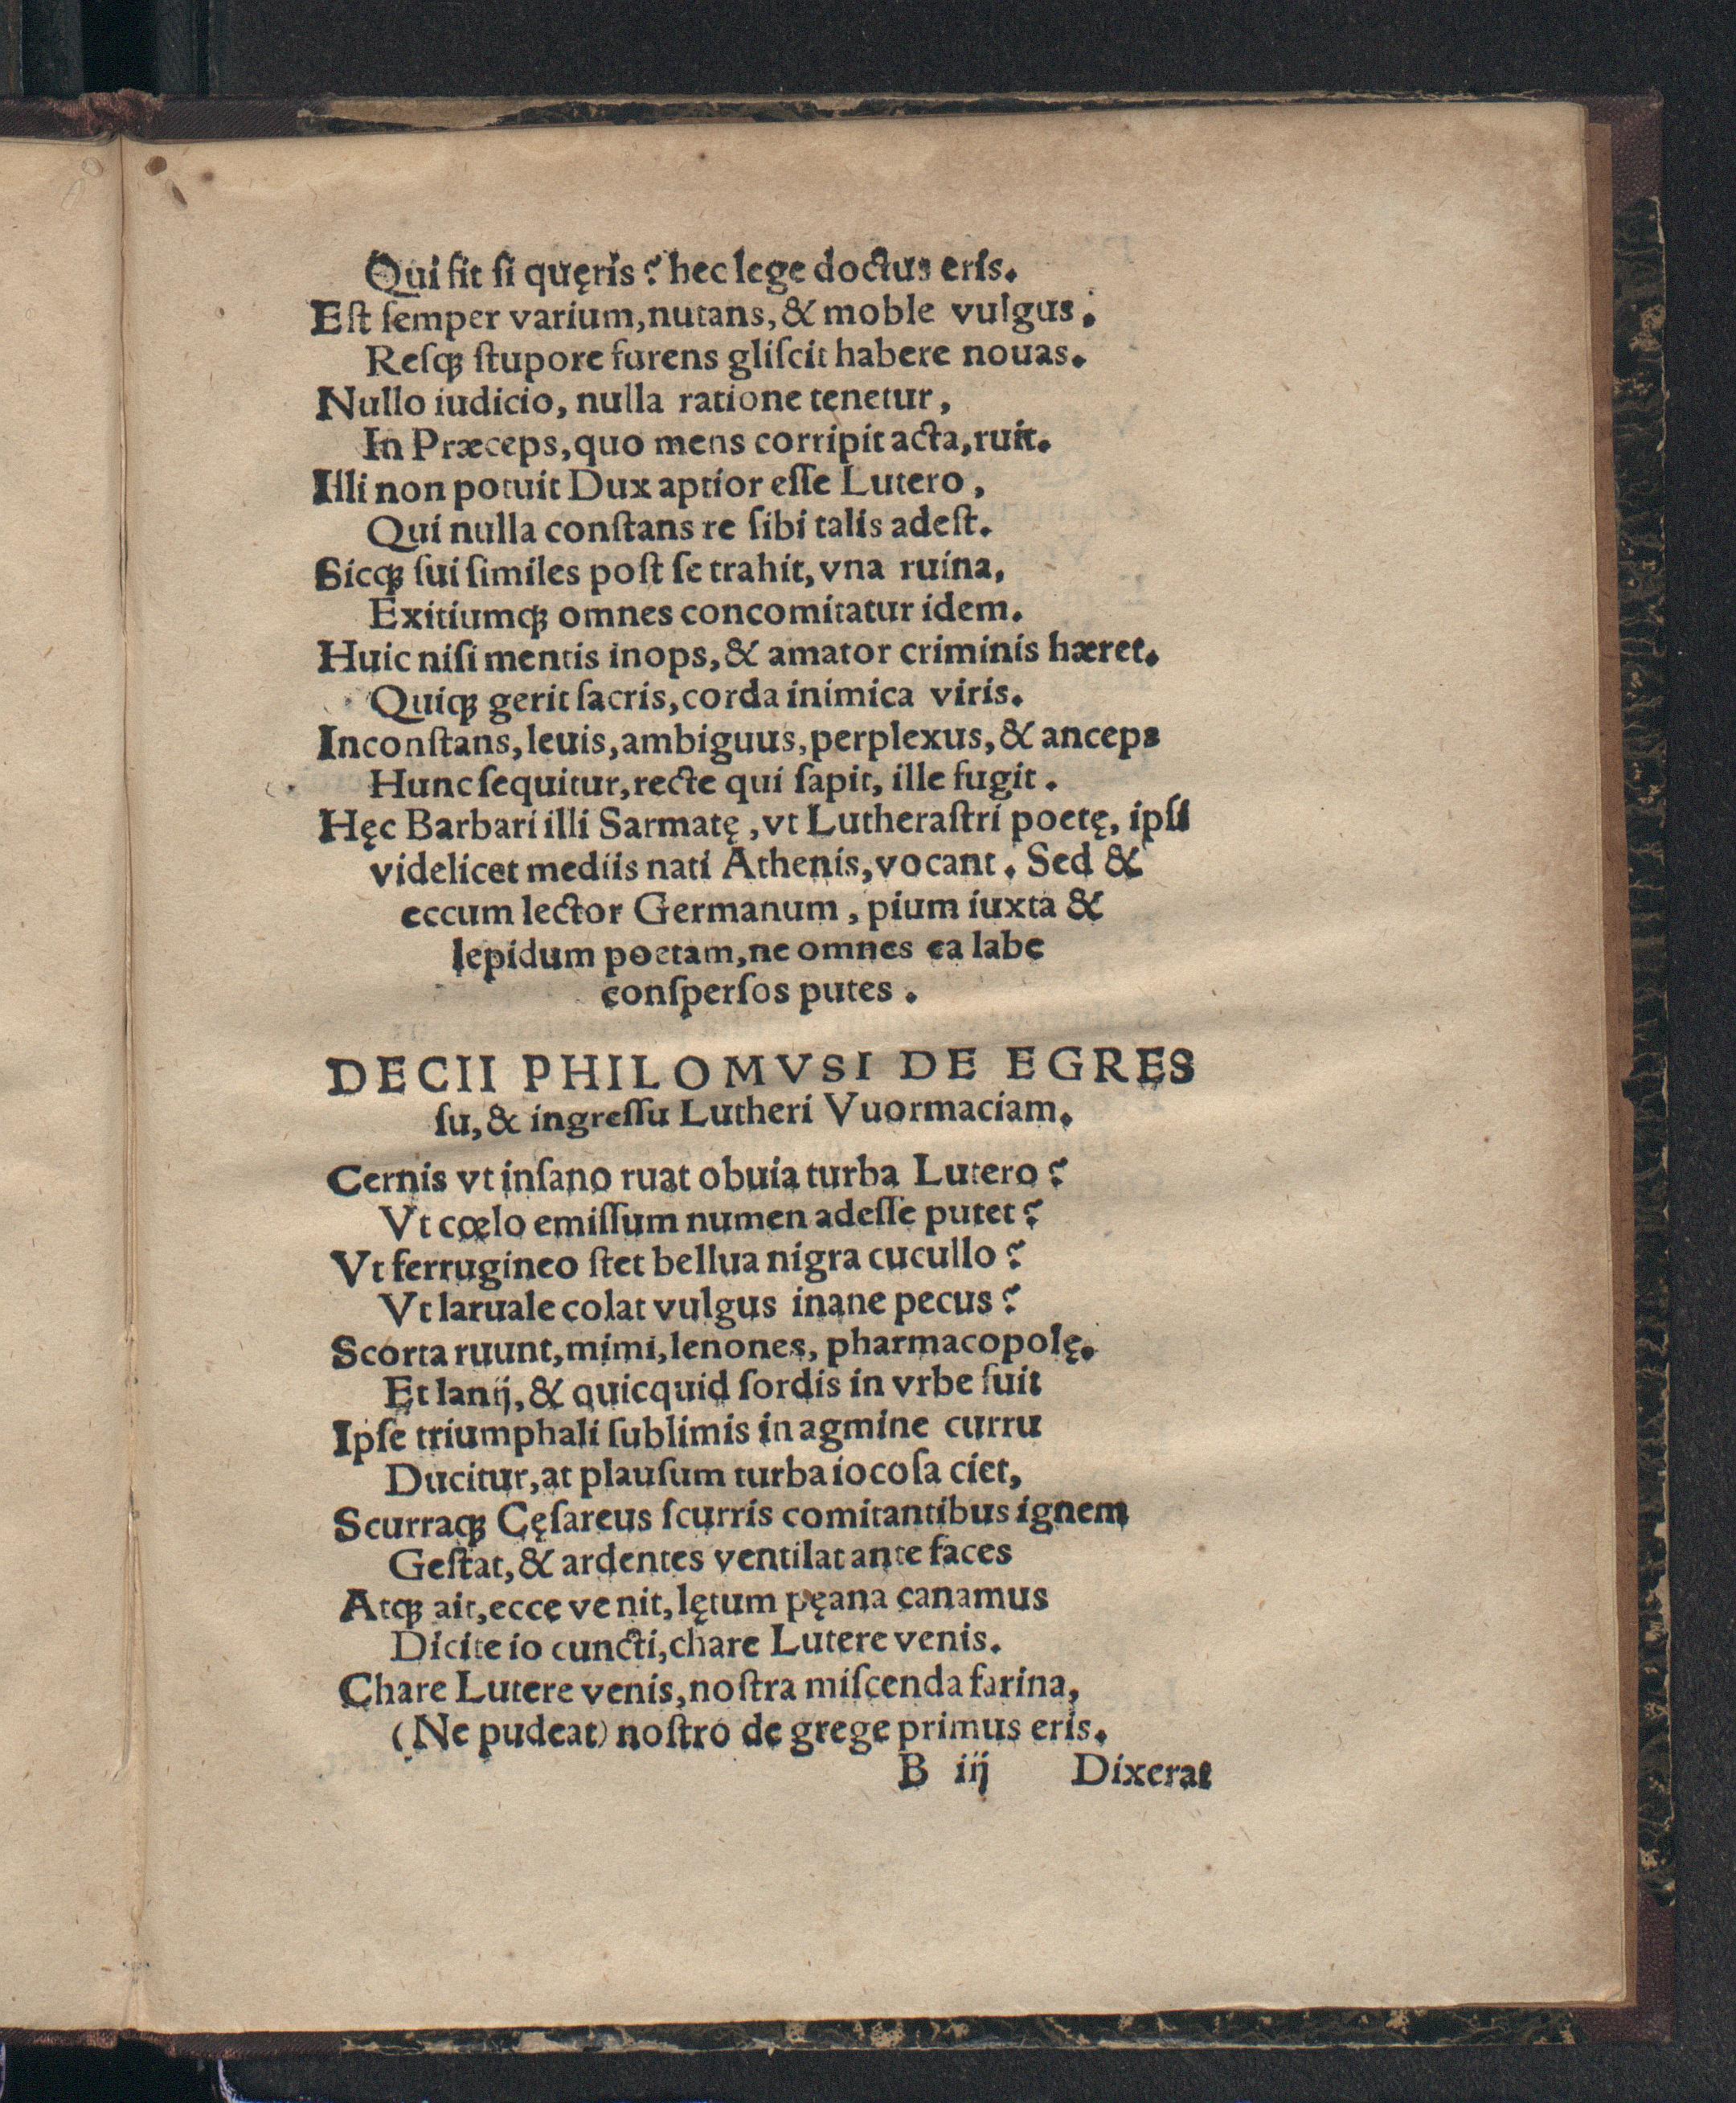 Qui ſit ſi quęris? hec lege doctus eris.
Eſt ſemper varium, nutans, & moble vulgus.
Reſqꝫ ſtupore furens gliſcit habere nouas.
Nullo iudicio, nulla ratione tenetur,
In Præceps, quo mens corripit acta, ruit.
Illi non potuit Dux aptior eſſe Lutero,
Qui nulla conſtans re ſibi talis adeſt.
Sicqꝫ ſui ſimiles poſt ſe trahit, vna ruina,
Exitiumqꝫ omnes concomitatur idem.
Huic niſi mentis inops, & amator criminis hæret.
Quiqꝫ gerit ſacris, corda inimica viris.
Inconſtans, leuis, ambiguus, perplexus, & anceps
Hunc ſequitur, recte qui ſapit, ille fugit.
Hęc Barbari illi Sarmatę, vt Lutheraſtri poetę, ipſi
videlicet mediis nati Athenis, vocant. Sed &
eccum lector Germanum, pium iuxta &
lepidum poetam, ne omnes ea labe
conſperſos putes.
DECII PHILOMVSI DE EGRES
ſu, & ingreſſu Lutheri Vuormaciam.
Cernis vt inſano ruat obuia turba Lutero?
Vt cœlo emiſſum numen adeſſe putet?
Vt ferrugineo ſtet bellua nigra cucullo?
Vt laruale colat vulgus inane pecus?
Scorta ruunt, mimi, lenones, pharmacopolę.
Et lanij, & quicquid ſordis in vrbe fuit
Ipſe triumphali ſublimis in agmine curru
Ducitur, at plauſum turba iocoſa ciet,
Scurraqꝫ Cęſareus ſcurris comitantibus ignem
Geſtat, & ardentes ventilat ante faces
Atqꝫ ait, ecce venit, lętum pęana canamus
Dicite io cuncti, chare Lutere venis.
Chare Lutere venis, noſtra miſcenda farina,
(Ne pudeat) noſtro de grege primus eris.
B iij Dixerat